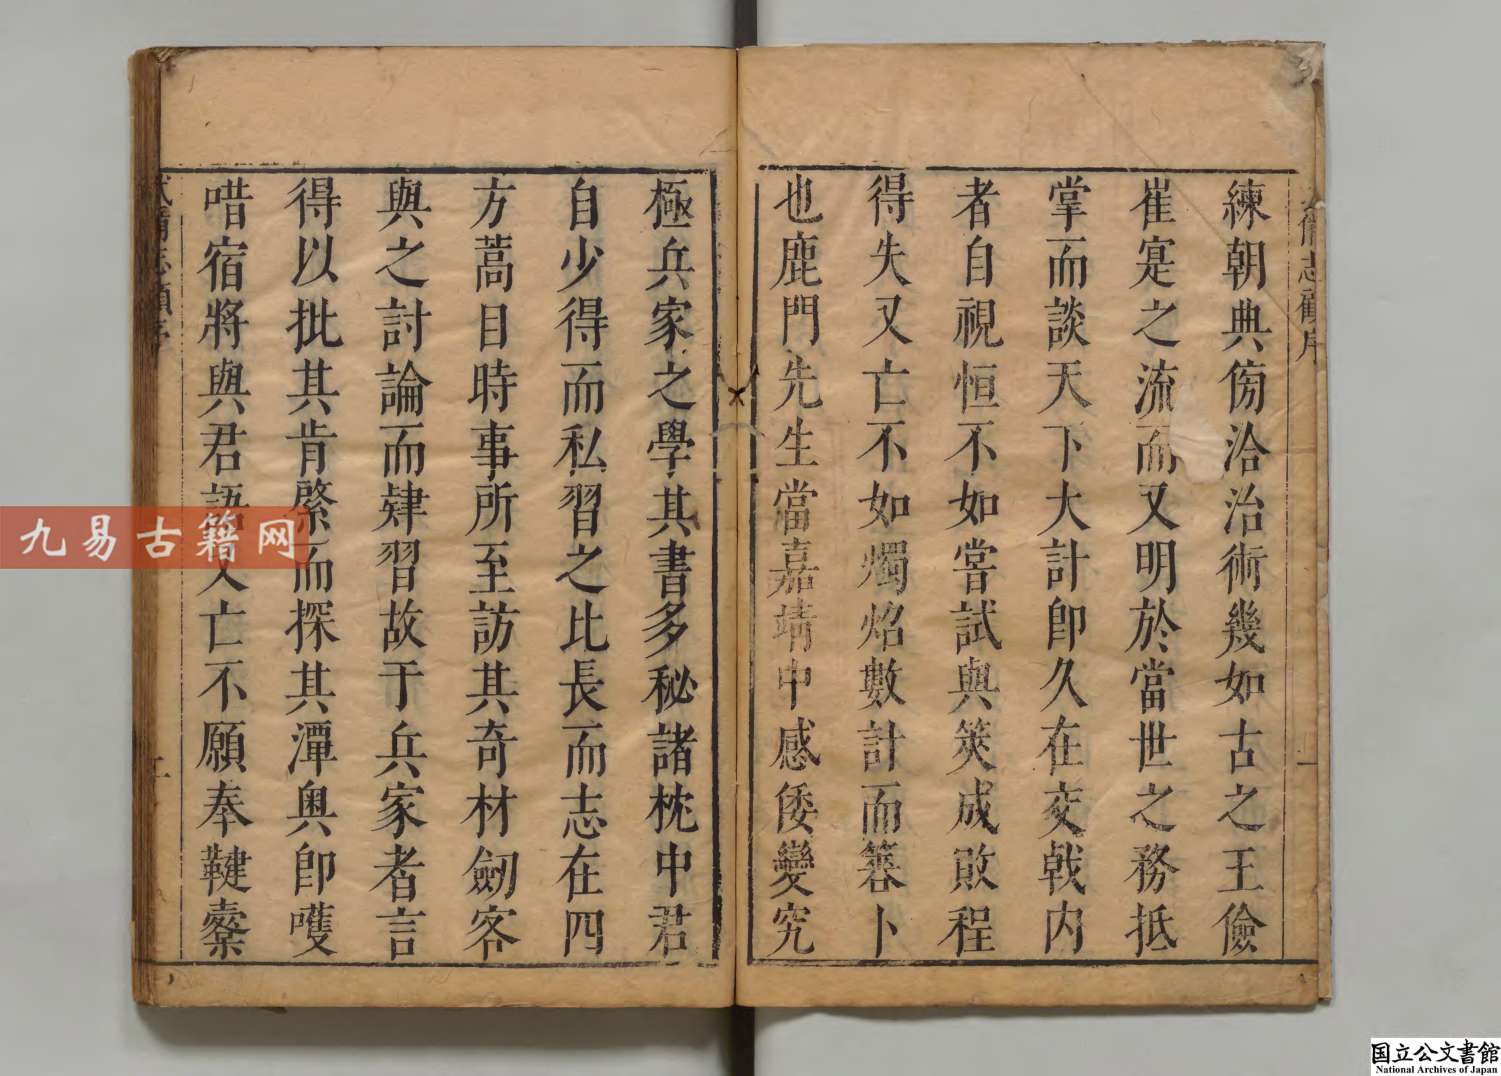 備志顧序
練朝典傍洽治術幾如古之王儉
崔寔之流而又明於當世之務抵
掌而談天下大計卽久在交戟内
者自視恒不如嘗試與筴成敗程
得失又亡不如燭炤數計而簭卜
也鹿門先生當嘉靖中感倭變究
極兵家之學其書多秘諸枕中君
自少得而私習之比長而志在四
方蒿目時事所至訪其奇材劒客
與之討論而肄習故于兵家者言
得以批其肯綮而探其潭奥卽嚄
唶宿將與君語又亡不願奉鞬櫜
武備志顧序
九易古籍网
国立公文書館
National Archives of Japan